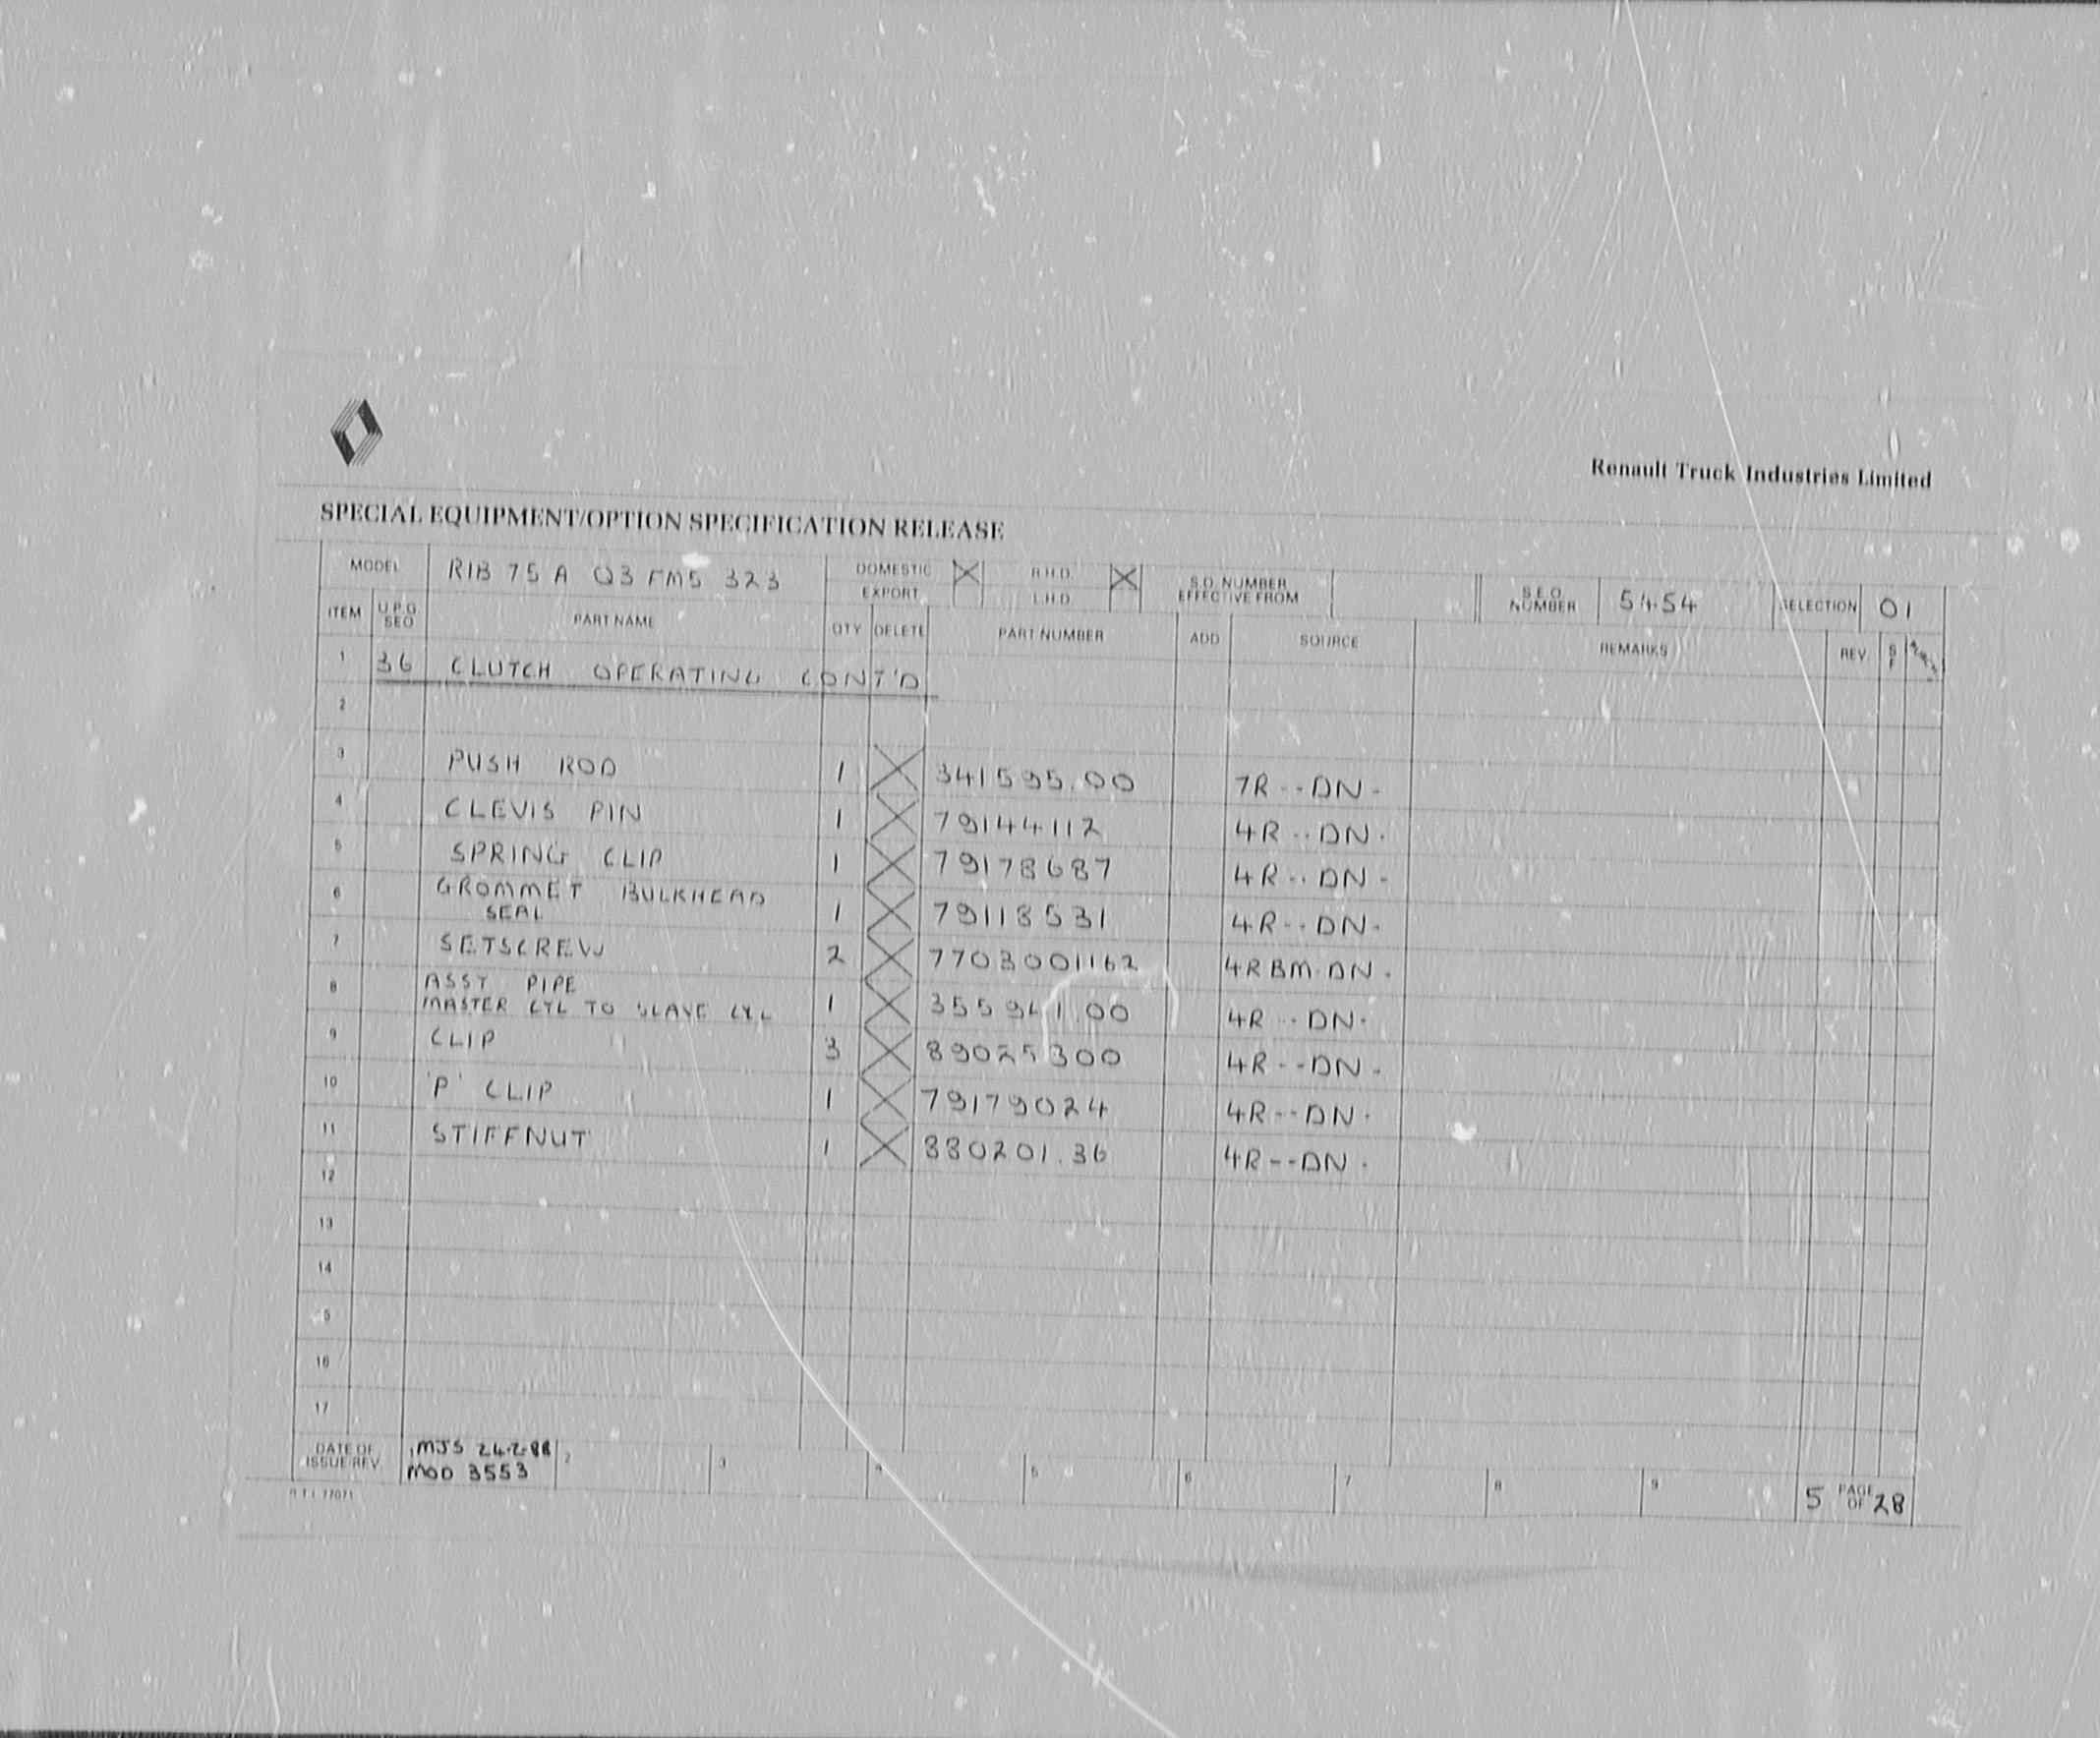 Renault Truck Industries Limited
SPECIAL EQUIPMENT/OPTION SPECIFICATION RELEASE
MODEL R1B 75 A 03 FM5 323 DOMESTIC X R.H.D. X S.O. NUMBER EFFECTIVE FROM S.E.O. NUMBER 5454 SELECTION 01
EXPORT L.H.D.
ITEM U.P.G. SEO PART NAME QTY DELETE PART NUMBER ADD SOURCE REMARKS REV S F
1 36 CLUTCH OPERATING CONT'D
2
3 PUSH ROD 1 X 341595.00 7R--DN-
4 CLEVIS PIN 1 X 79144112 4R--DN-
5 SPRING CLIP 1 X 79178687 4R--DN-
6 GROMMET BULKHEAD
SEAL 1 X 79118531 4R--DN-
7 SETSCREW 2 X 7703001162 4RBM-DN-
8 ASSY PIPE
MASTER CYL TO SLAVE CYL 1 X 355941.00 4R--DN-
9 CLIP 3 X 89025300 4R--DN-
10 'P' CLIP 1 X 79179024 4R--DN-
11 STIFFNUT 1 X 880201.36 4R--DN-
12
13
14
15
16
17
DATE OF ISSUE/REV 1 MJS 24.2.88 2 3 4 5 6 7 8 9 5 PAGE OF 28
MOD 3553
R.T.I. 77071